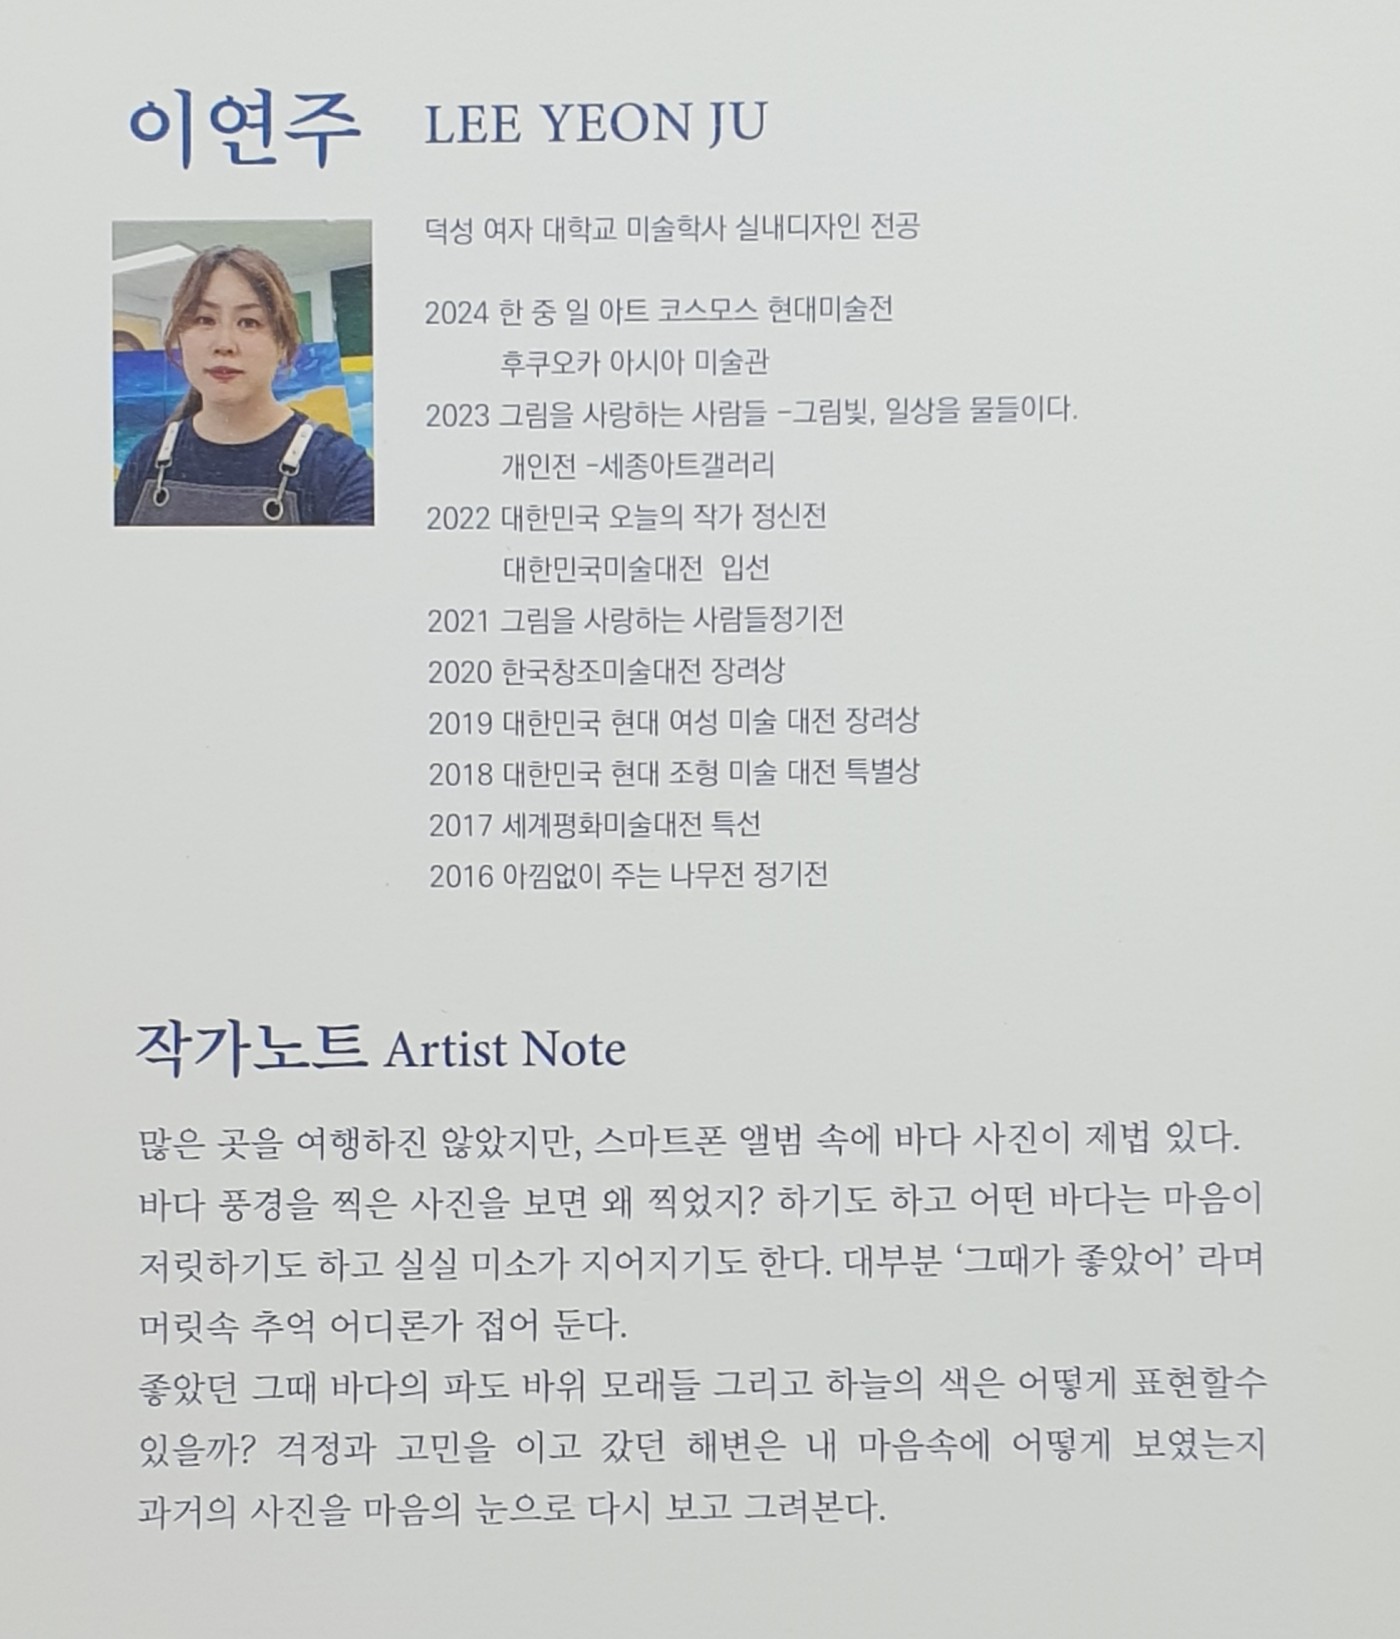 이연주 LEE YEON JU
덕성 여자 대학교 미술학사 실내디자인 전공
2024 한 중 일 아트 코스모스 현대미술전
후쿠오카 아시아 미술관
2023 그림을 사랑하는 사람들 -그림빛, 일상을 물들이다.
개인전 -세종아트갤러리
2022 대한민국 오늘의 작가 정신전
대한민국미술대전 입선
2021 그림을 사랑하는 사람들정기전
2020 한국창조미술대전 장려상
2019 대한민국 현대 여성 미술 대전 장려상
2018 대한민국 현대 조형 미술 대전 특별상
2017 세계평화미술대전 특선
2016 아낌없이 주는 나무전 정기전
작가노트 Artist Note
많은 곳을 여행하진 않았지만, 스마트폰 앨범 속에 바다 사진이 제법 있다.
바다 풍경을 찍은 사진을 보면 왜 찍었지? 하기도 하고 어떤 바다는 마음이
저릿하기도 하고 실실 미소가 지어지기도 한다. 대부분 ‘그때가 좋았어’ 라며
머릿속 추억 어디론가 접어 둔다.
좋았던 그때 바다의 파도 바위 모래들 그리고 하늘의 색은 어떻게 표현할수
있을까? 걱정과 고민을 이고 갔던 해변은 내 마음속에 어떻게 보였는지
과거의 사진을 마음의 눈으로 다시 보고 그려본다.